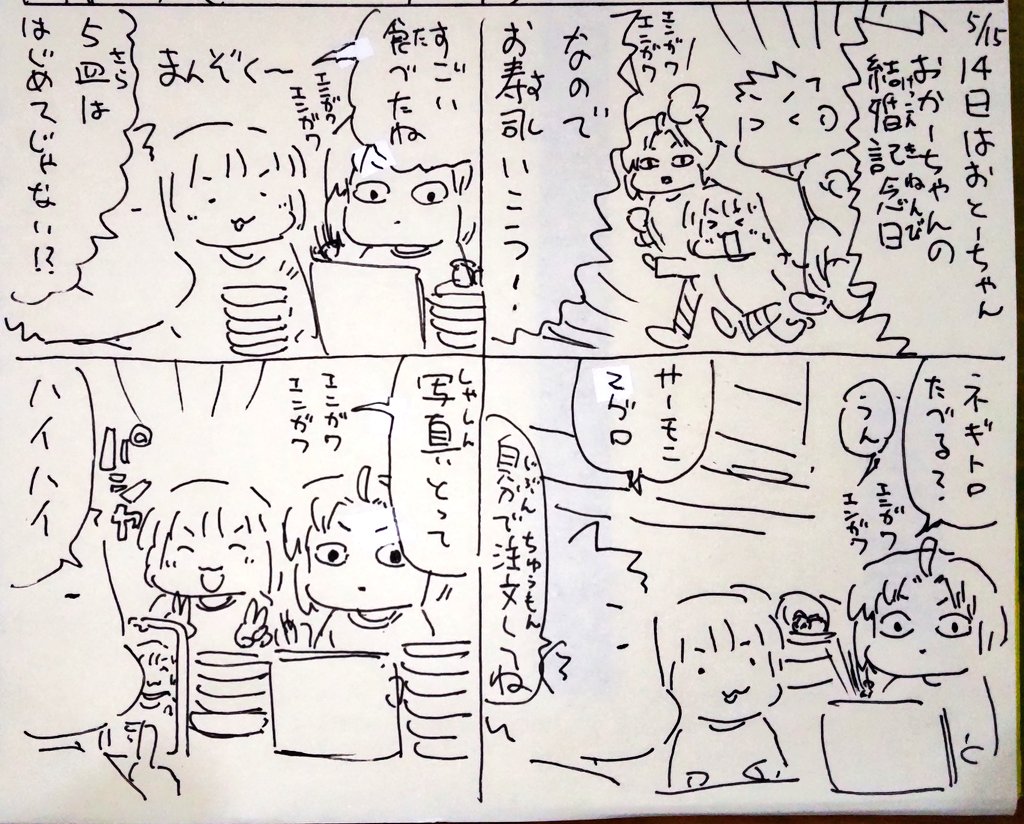 5/15
14日はおとーちゃん
おかーちゃんの
結婚記念日
けっこん
きねんび
エンガワ
エンガワ
なので
お寿司いこうっ!
すし
ネギトロ
たべる?
うん
エンガワ
エンガワ
サーモン
マグロ
自分で注文してね
じぶん
ちゅうもん
すごい
食べたね
た
エンガワ
エンガワ
まんぞく〜
5皿は
さら
はじめてじゃない!?
写真とって
しゃしん
エンガワ
エンガワ
ハイハイ